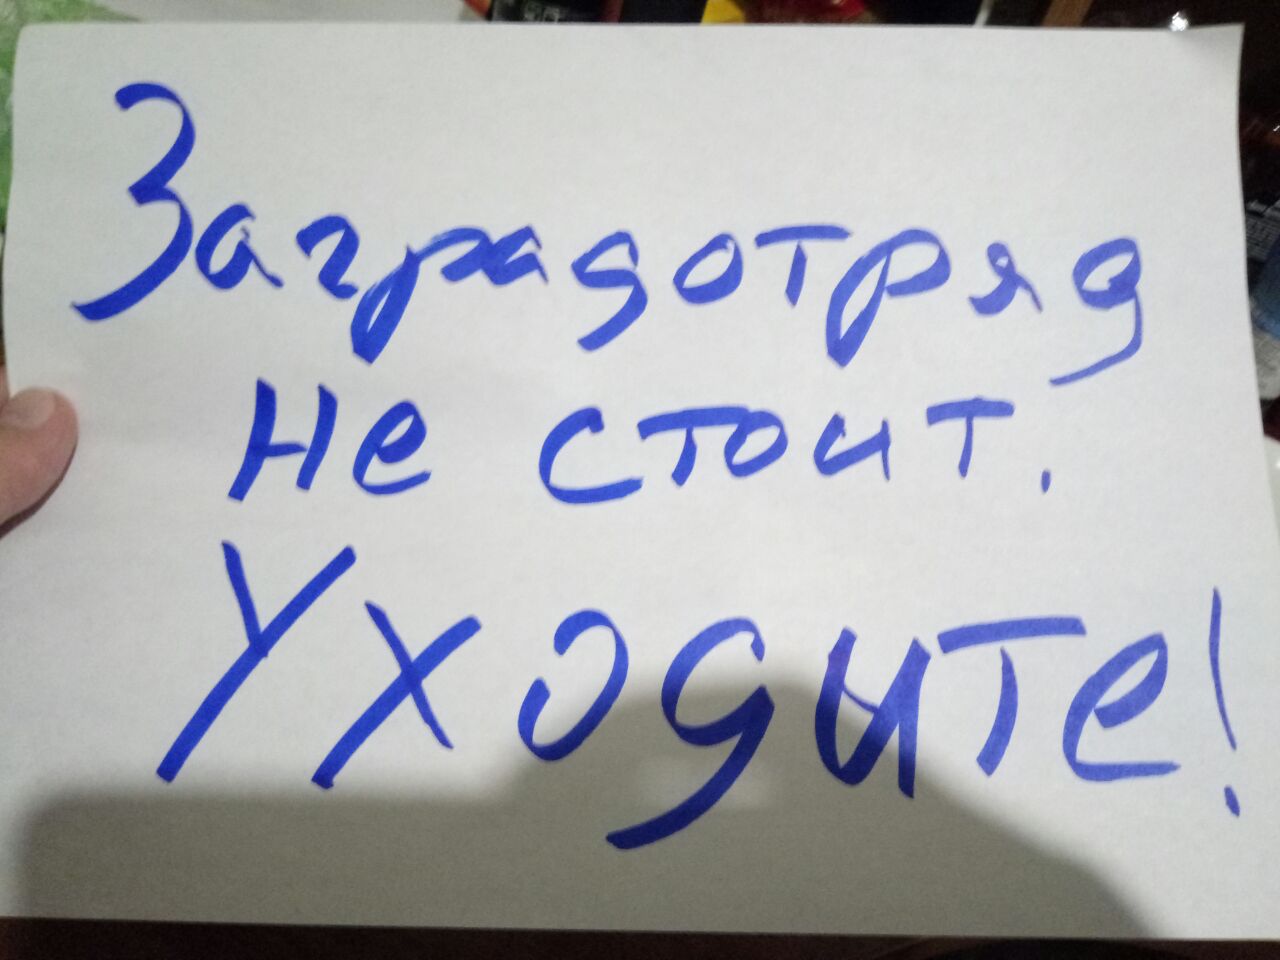 Заградотряд
не стоит.
Уходите!